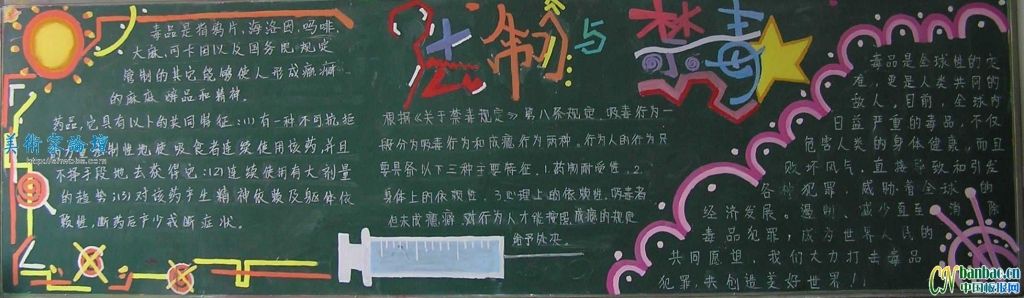 法制与禁毒
毒品是指鸦片,海洛因,吗啡,
大麻,可卡因以及国务院规定
管制的其它能够使人形成瘾癖
的麻麻醉品和精神。
药品,它具有以下的共同特征:(1)有一种不可抗拒
制性地使吸食者连续使用该药,并且
不择手段地去获得它;(2)连续使用有大剂量
的趋势;(3)对该药产生精神依赖及躯体依
赖性,断药后产少戒断症状。
根据《关于禁毒规定》第八条规定,吸毒行为一
般分为吸毒行为和成瘾行为两种。行为人的行为只
要具备以下三种主要特征,1.药物耐受性,2.
身体上的依赖性,3.心理上的依赖性,吸毒者
但未成瘾癖,对行为人才能按照戒病的规定
给予处决。
毒品是全球性的灾
难,更是人类共同的
敌人。目前,全球内
日益严重的毒品,不仅
危害人类的身体健康,而且
败坏风气,直接导致和引发
各种犯罪,威胁着全球的
经济发展。遏制、减少直至消除
毒品犯罪,成为世界人民的
共同愿望,我们大力打击毒品
犯罪,共创造美好世界!!
美術家論壇
CN banbao.cn
中国板报网